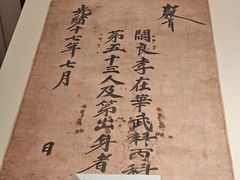 教旨
閑良李在華武科丙科
第五十三人及第出身者
光緖十七年七月 日